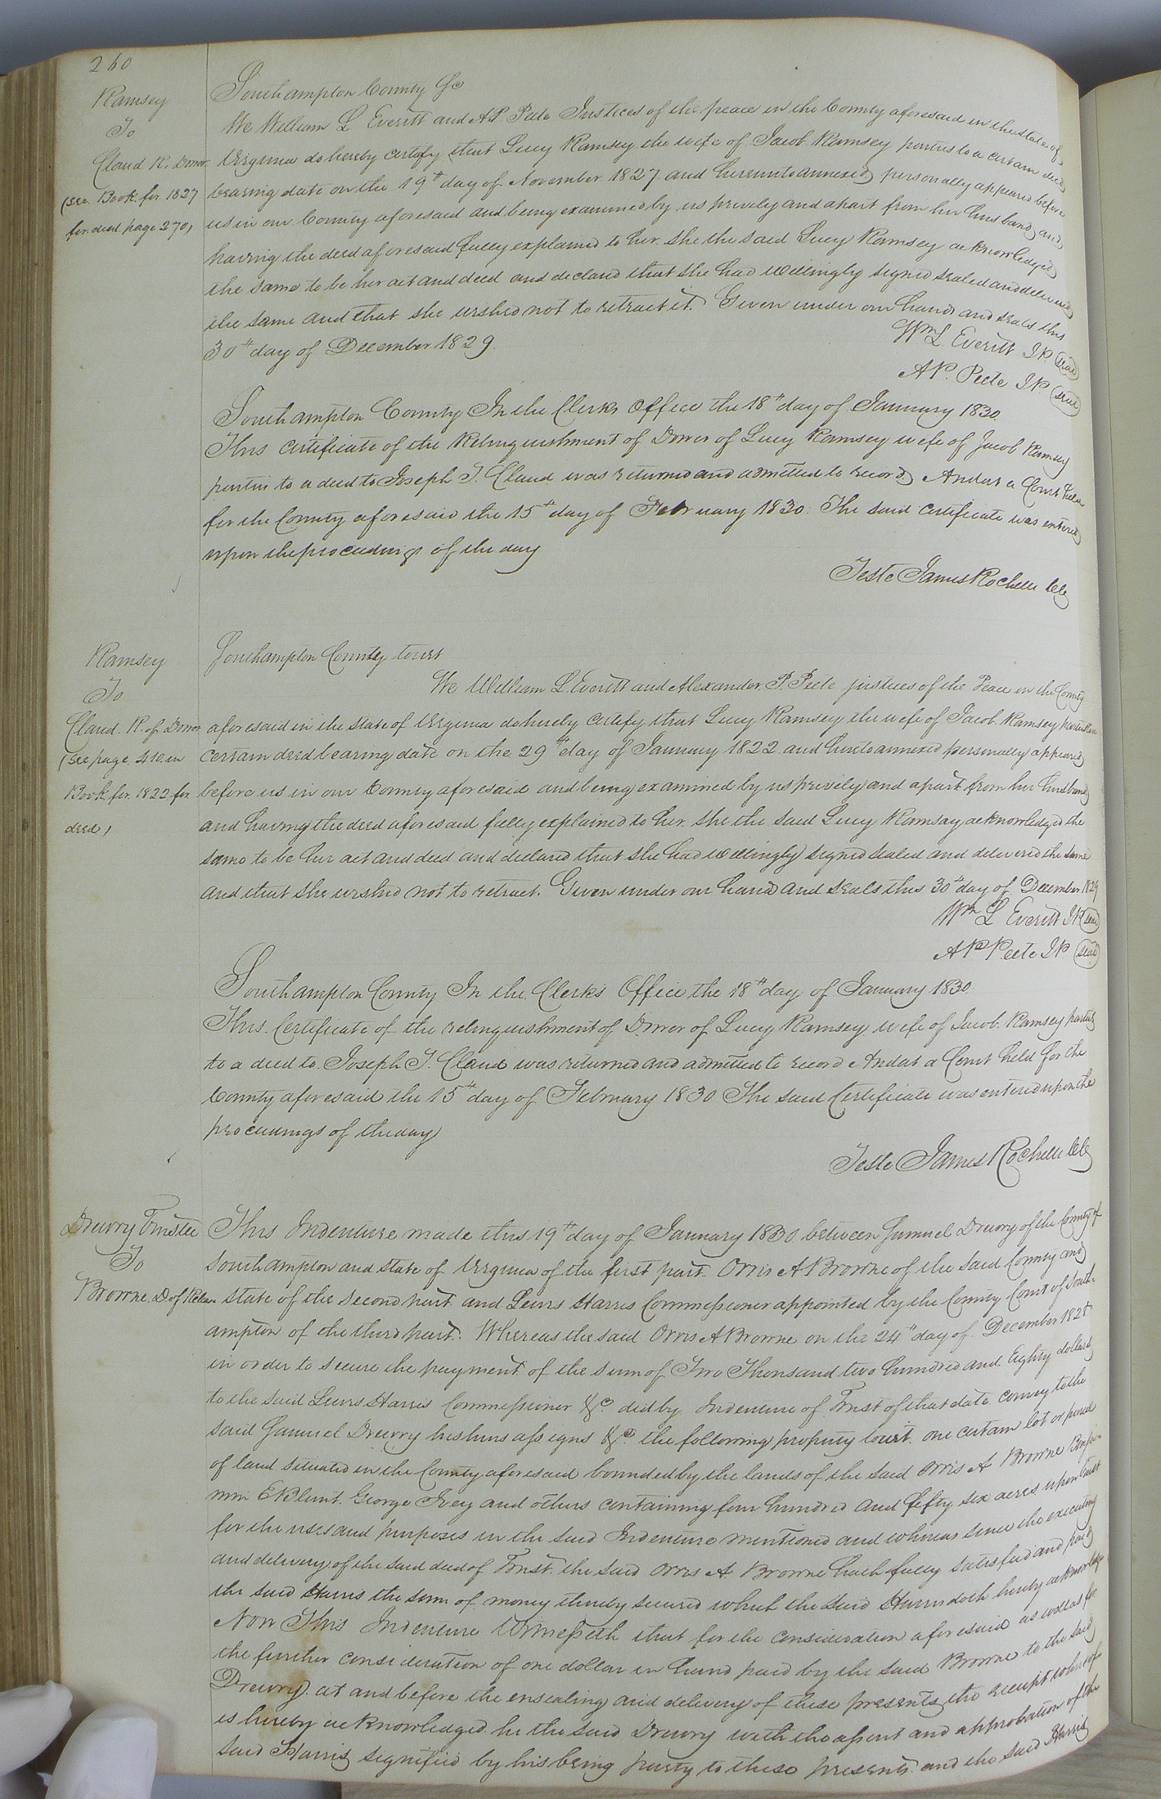 260
Ramsey
To
Claud R. Dower
(see Book for 1827
for deed page 270,
Southampton County Sc
We William L Everitt and A P Peete Justices of the peace in the County aforesaid in the state of
Virginia do hereby certify that Lucy Ramsey the wife of Jacob Ramsey parties to a certain deed
bearing date on the 19th day of November 1827 and hereunto annexed personally appeared before
us in our County aforesaid and being examined by us privily and apart from her husband, and
having the deed aforesaid fully explained to her she the said Lucy Ramsey acknowledged
the same to be her act and deed and declared that she had willingly signed sealed and delivered
the same and that she wished not to retract it. Given under our hands and seals this
30th day of December 1829
Wm L Everitt JP (seal)
A P. Peete JP (seal)
Southampton County In the Clerks Office the 18th day of January 1830
This certificate of the Relinquishment of Dower of Lucy Ramsey wife of Jacob Ramsey
parties to a deed to Joseph T. Claud was returned and admitted to record And at a Court held
for the County aforesaid the 15th day of February 1830. The said certificate was entered
upon the proceedings of the day
Teste James Rochelle Clk
Ramsey
To
Claud R. of Dower
(see page 410 in
Book for 1822 for
deed,
Southampton County towit
We William L Everitt and Alexander P. Peete justices of the Peace in the County
aforesaid in the state of Virginia do hereby certify that Lucy Ramsey the wife of Jacob Ramsey parties to a
certain deed bearing date on the 29th day of January 1822 and hereto annexed personally appeared
before us in our County aforesaid and being examined by us privily and apart from her husband
and having the deed aforesaid fully explained to her she the said Lucy Ramsay acknowledged the
same to be her act and deed and declared that she had willingly signed sealed and delivered the same
and that she wished not to retract. Given under our hands and seals this 30th day of December 1829
Wm L Everitt JP (seal)
A P Peete JP (seal)
Southampton County In the Clerks Office the 18th day of January 1830
This Certificate of the relinquishment of Dower of Lucy Ramsey wife of Jacob Ramsey parties
to a deed to Joseph T. Claud was returned and admitted to record And at a Court held for the
County aforesaid the 15th day of February 1830 The said Certificate was entered upon the
proceedings of the day
Teste James Rochelle Clk
Drewry Trustee
To
Browne D of Relea
This Indenture made this 19th day of January 1830 between Samuel Drewry of the County of
Southampton and state of Virginia of the first part. Orris A Browne of the said County and
state of the second part and Lewis Harris Commissioner appointed by the County Court of South-
ampton of the third part. Whereas the said Orris A Browne on the 24th day of December 182
in order to secure the payment of the sum of Two Thousand two hundred and Eighty dollars
to the said Lewis Harris Commissioner &c. did by Indenture of Trust of that date convey to the
said Samuel Drewry his heirs assigns &c the following property towit. one certain lot or parcel
of land situated in the County aforesaid bounded by the lands of the said Orris A Browne
E Blunt. George Ivey and others containing four hundred and fifty six acres upon trust
for the uses and purposes in the said Indenture mentioned and whereas since the executing
and delivery of the said deed of Trust. the said Orris A. Browne hath fully satisfied and paid
the said Harris the sum of money thereby secured which the said Harris doth hereby acknowledge
Now This Indenture Witnesseth that for the consideration aforesaid as well as for
the further consideration of one dollar in hand paid by the said Browne to the said
Drewry. at and before the ensealing and delivery of these presents the receipt whereof
is hereby acknowledged. he the said Drewry with the assent and approbation of the
said Harris signified by his being party to these presents. and the said Harris